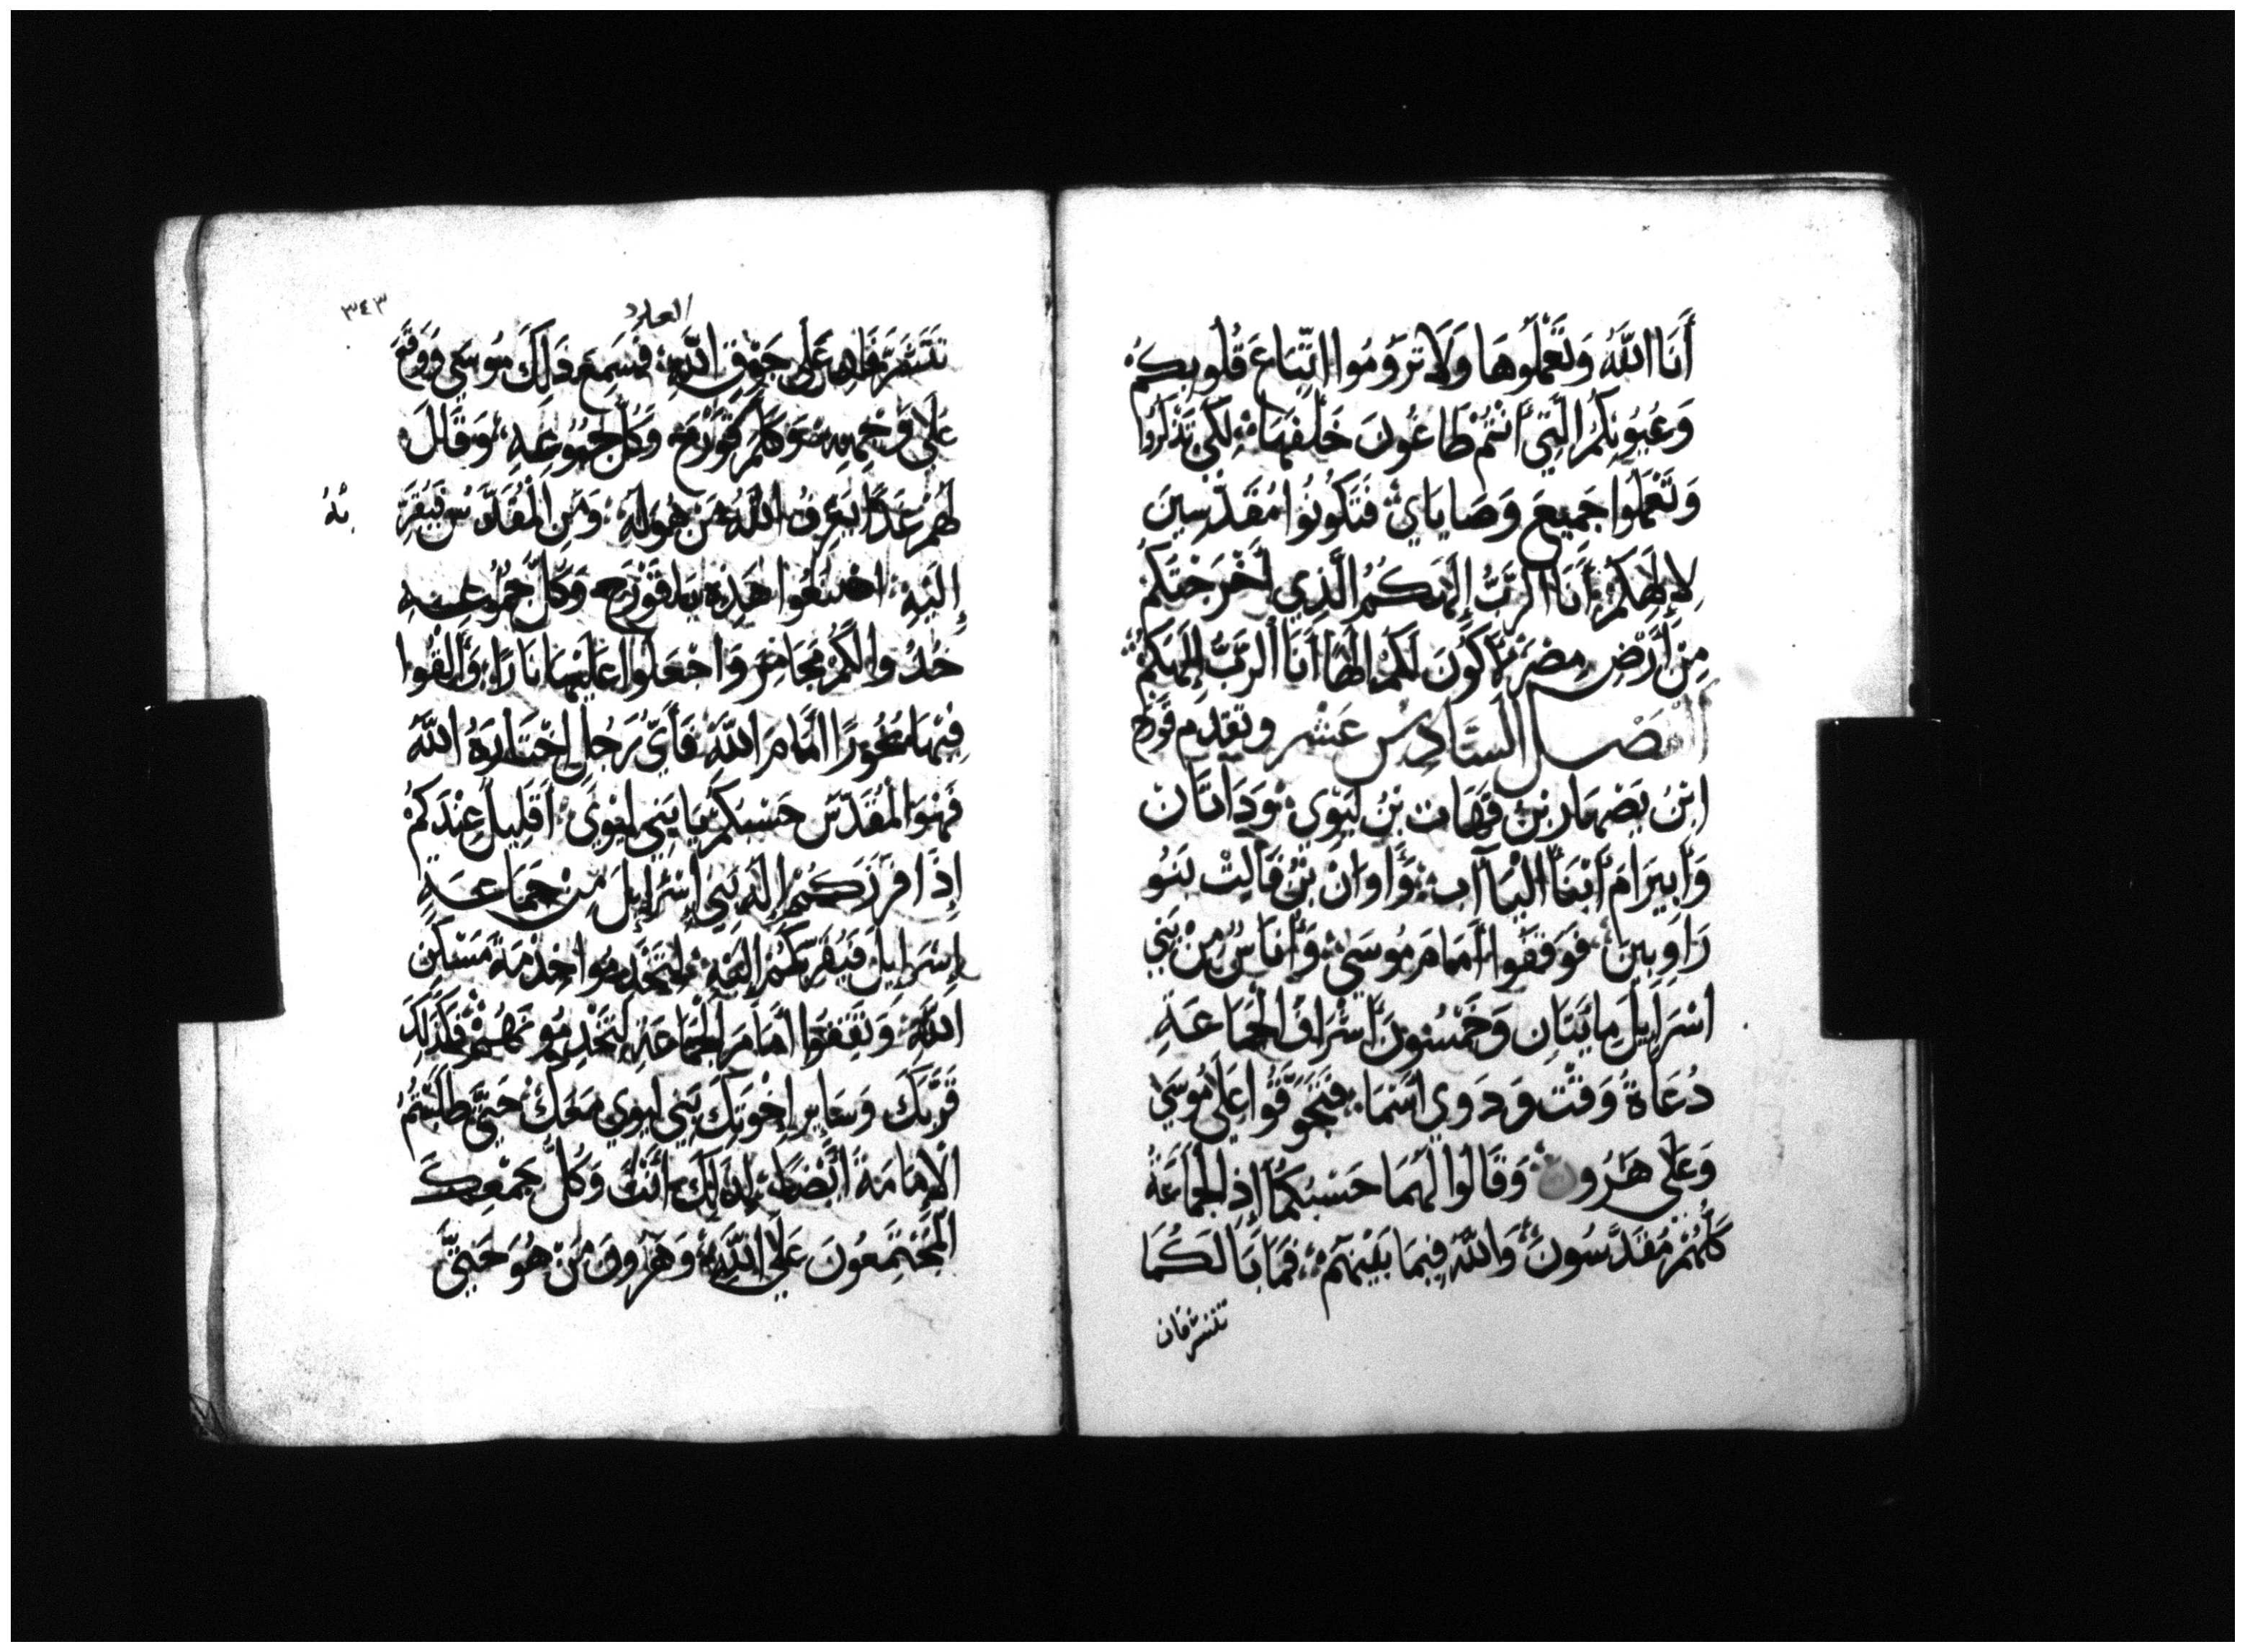 أَنَا اللَّهُ وَتَعْمَلُوهَا وَلَا تَرُومُوا اتِّبَاعَ قُلُوبِكُمْ
وَعُيُونِكُمُ الَّتِي أَنْتُمْ طَاعُونَ خَلْفَهَا لِكَي تَذْكُرُوا
وَتَعْمَلُوا جَمِيعَ وَصَايَايَ فَتَكُونُوا مُقَدَّسِينَ
لِإِلَهِكُمْ أَنَا الرَّبُّ إِلَهُكُمُ الَّذِي أَخْرَجْتُكُمْ
مِنْ أَرْضِ مِصْرَ لِأَكُونَ لَكُمْ إِلَهًا أَنَا الرَّبُّ إِلَهُكُمْ
الفصل السَّادِسْ عَشْر وتقدم قورح
ابْنُ يَصْهَار بْنُ قَهَات بْنُ لِيوِي وَدَاتَان
وَأَبِيرَامَ أَبْنَا الْيَاآب وَأَوَانْ بْنُ فَالِتْ بَنُو
رَاوبِينَ فَوَقَفُوا أَمَامَ مُوسَى وَأُنَاسٌ مِنْ بَنِي
اسْرَايِيلَ مِايَتَانِ وَخَمْسُونَ أَشْرَافُ الْجَمَاعَةِ
دُعَاةُ وَقْتٍ وَذَوِي أَسْمَا فَتَجَوَّقُوا عَلَى مُوسَى
وَعَلَى هَرُون وَقَالُوا لَهُمَا حَسْبُكُمَا إِذِ الْجَمَاعَةُ
كُلُّهُمْ مُقَدَّسُونَ وَاللَّهُ فِيمَا بَيْنَهُمْ فَمَا بَالُكُمَا
تتشرفان
٣٤٣
العدد
تَتَشَرَّفَانِ عَلَى جَوْقِ اللَّهِ فَسَمِعَ ذَلِكَ مُوسَى وَوَقَعَ
عَلَى وَجْهِهِ وَكَلَّمَ قُورَح وَكُلَّ جُمُوعِهِ وَقَالَ
لَهُمْ غَدًا يَعْرِفُ اللَّهُ مَنْ هُوَ لَهُ وَمَنِ الْمُقَدَّسُ فَيُقَرِّ
بُهُ
إِلَيْهِ اصْنَعُوا هَذِهِ يَا قُورَح وَكُلُّ جُمُوعِهِ
خُذُوا لَكُمْ مَجَامِرَ وَاجْعَلُوا عَلَيْهَا نَارًا وَأَلْقُوا
فِيهَا بَخُورًا أَمَامَ اللَّهِ فَأَيُّ رَجُلٍ اخْتَارَهُ اللَّهُ
فَهُوَ الْمُقَدَّسُ حَسْبُكُمْ يَا بَنِي لِيوِي أَقَلِيلٌ عِنْدَكُمْ
إِذْ أَفْرَزَكُمْ إِلَهُ بَنِي إِسْرَايِيلَ مِنْ جَمَاعَةِ
إِسْرَايِيلَ فَيُقَرِّبُكُمْ إِلَيْهِ لِتَخْدِمُوا خِدْمَةَ مَسْكَنِ
اللَّهِ وَتَقِفُوا أَمَامَ الْجَمَاعَةِ لِتَخْدِمُونَهُمْ فَكَذَلِكَ
قَرَّبَكَ وَسَايِرَ إِخْوَتِكَ بَنِي لِيوِي مَعَكَ حَتَّى طَلَبْتُمُ
الْإِمَامَةَ أَيْضًا لِذَلِكَ أَنْتَ وَكُلُّ جَمْعِكَ
الْمُجْتَمِعُونَ عَلَى اللَّهِ وَهَرُونَ مَنْ هُوَ حَتَّى